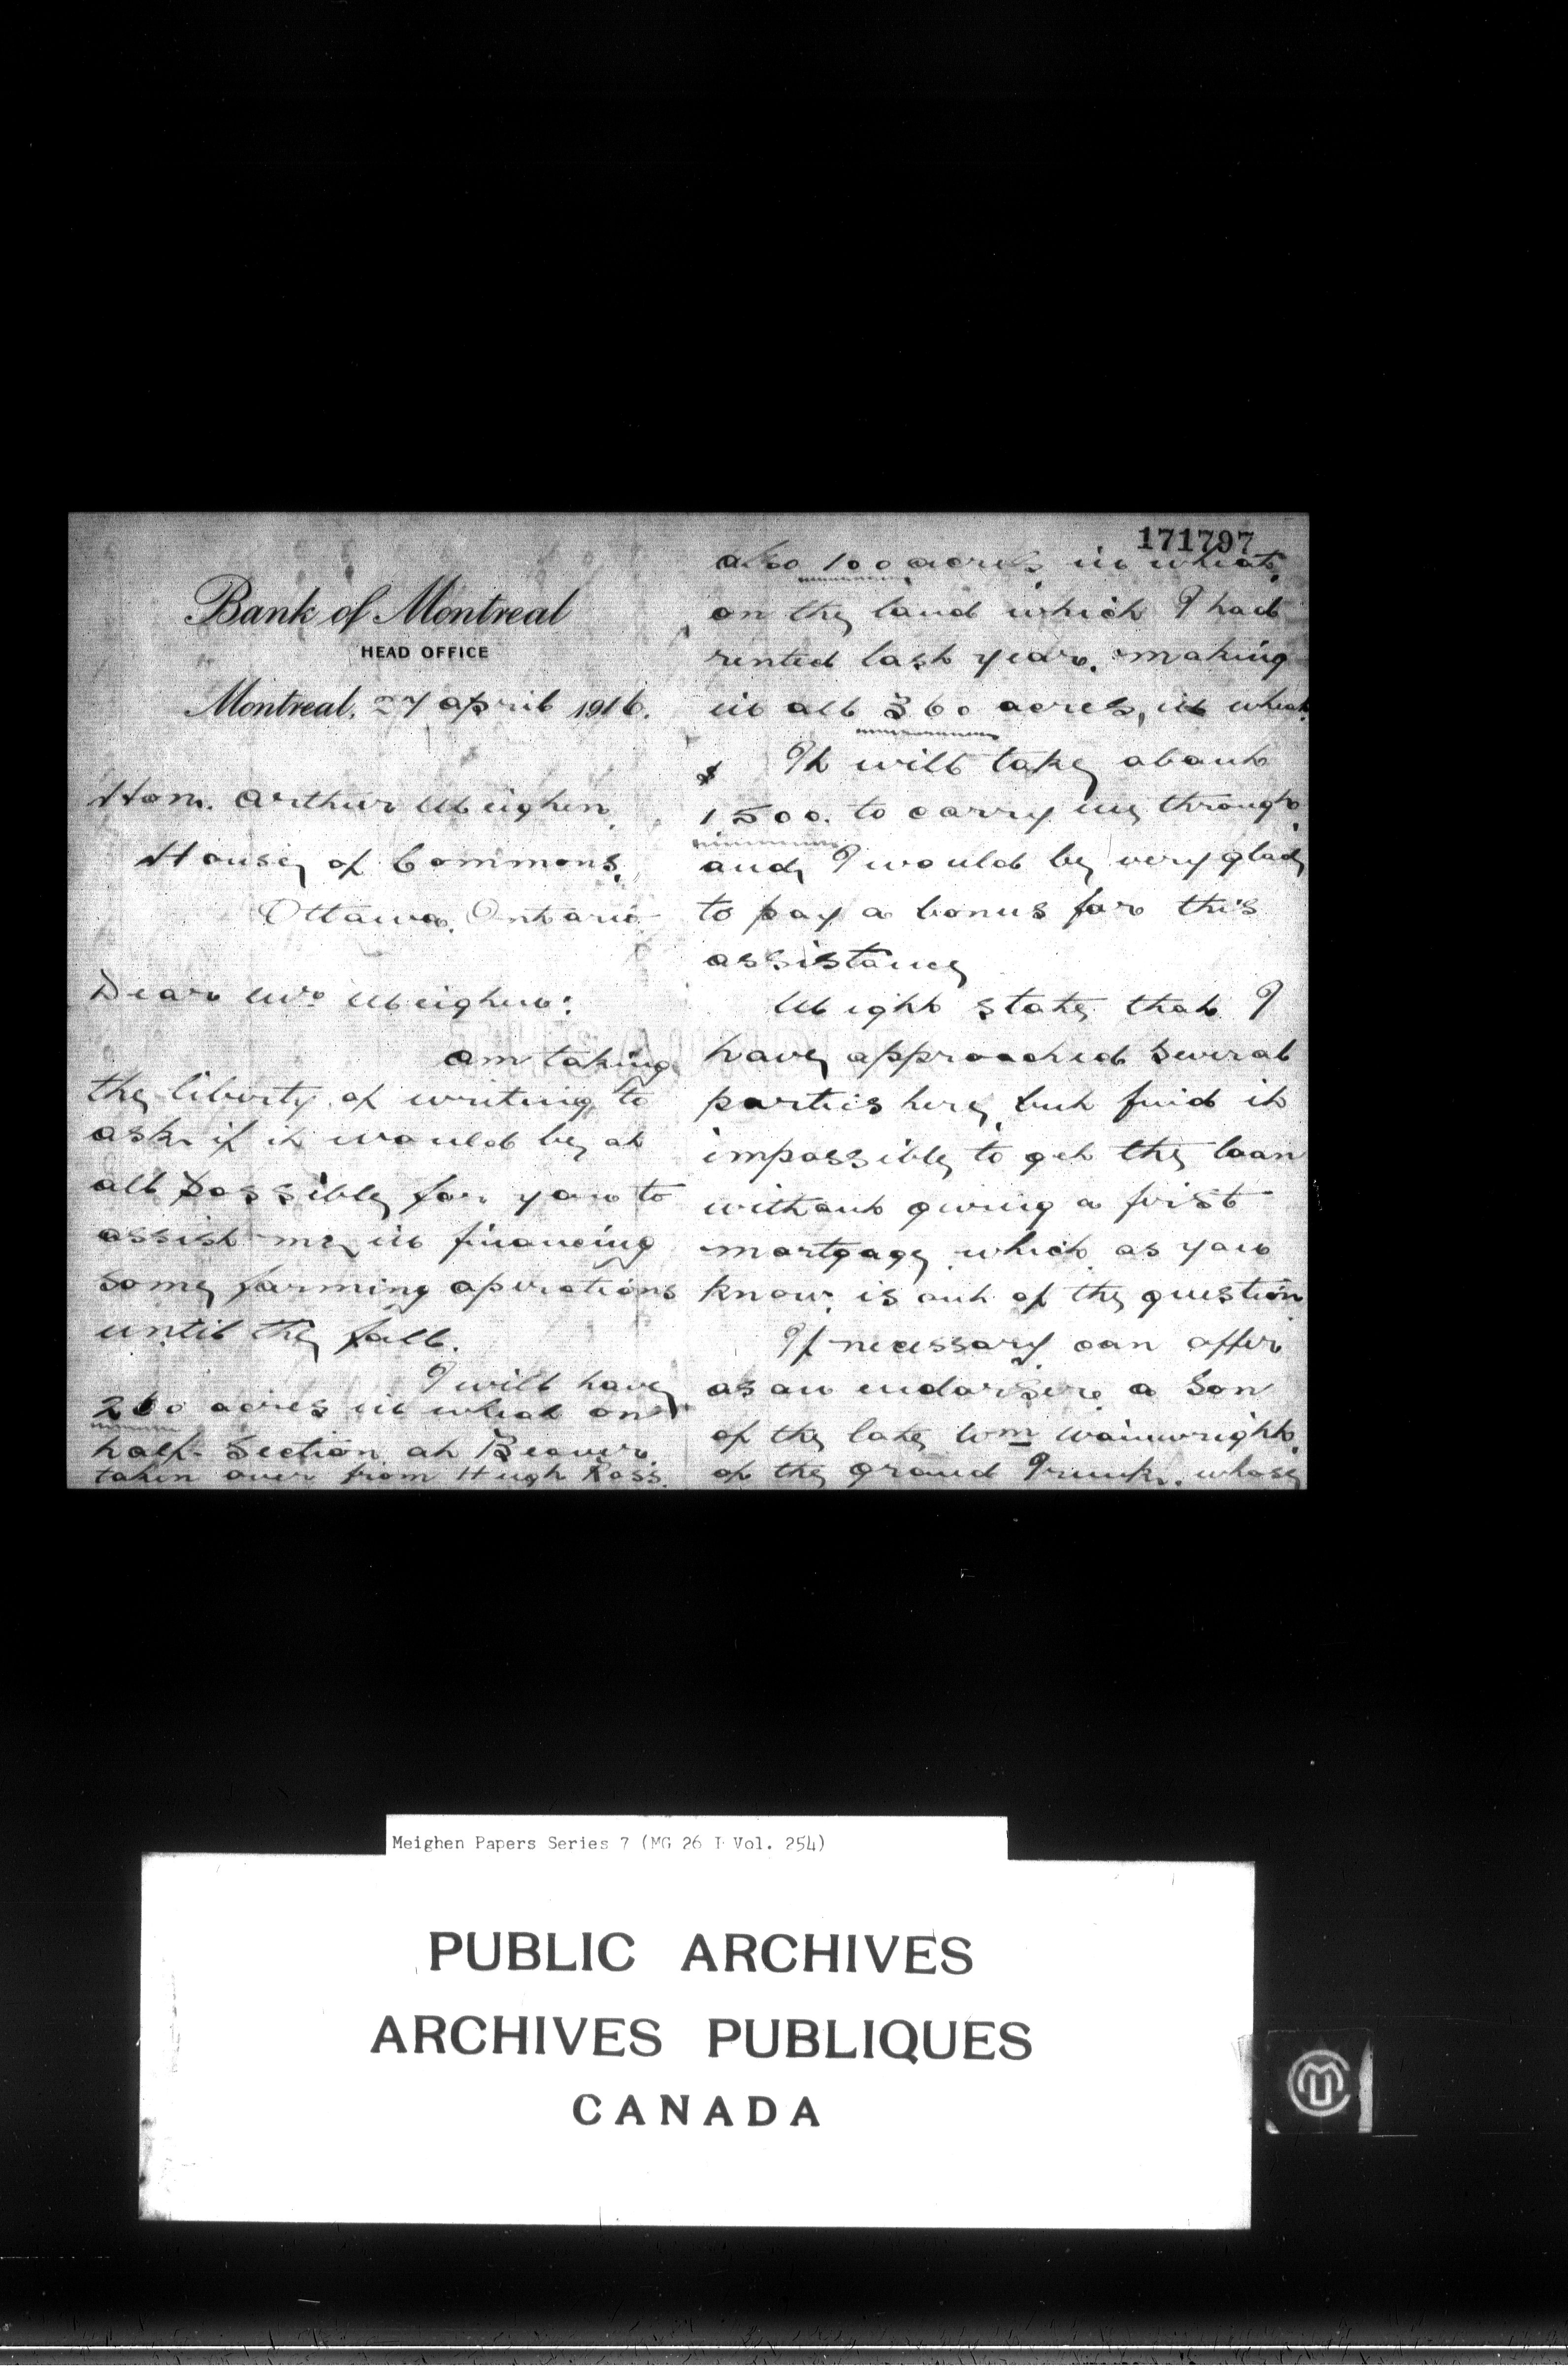 Bank of Montreal
HEAD OFFICE
Montreal, 27 april 1916.
Hon. Arthur Meighen,
House of Commons,
Ottawa, Ontario
Dear Mr. Meighen:
am taking
the liberty of writing to
ask if it would be at
all possible for you to
assist me in financing
some farming operations
until the fall.
I will have
260 acres in wheat on
half-section at Beaver.
taken over from Hugh Ross.
171797
also 100 acres in wheat,
on the land which I had
rented last year. making
in all 360 acres, in wheat.
It will take about
$
1500. to carry me through,
and, I would be very glad
to pay a bonus for this
assistance
Might state that I
have approached several
parties here, but find it
impossible to get the loan
without giving a first
mortgage, which as you
know, is out of the question.
If necessary can offer
as an endorser a son
of the late Wm Wainwright,
of the Grand Trunk, whose
Meighen Papers Series 7 (MG 26 I Vol. 254)
PUBLIC ARCHIVES
ARCHIVES PUBLIQUES
CANADA